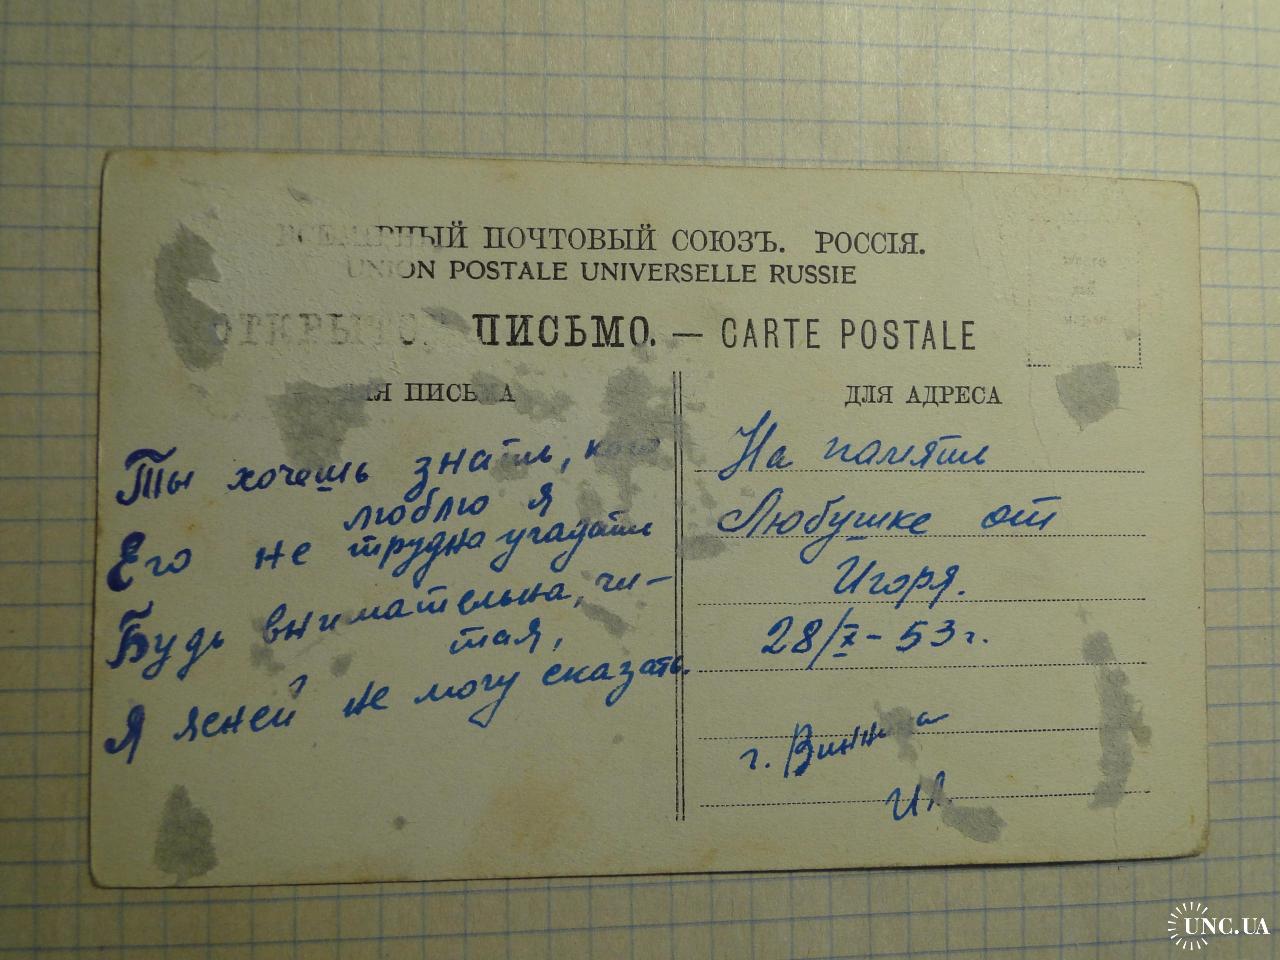 ВСЕМІРНЫЙ ПОЧТОВЫЙ СОЮЗЪ. РОССІЯ.
UNION POSTALE UNIVERSELLE RUSSIE
ОТКРЫТОЕ ПИСЬМО. — CARTE POSTALE
ДЛЯ ПИСЬМА
Ты хочешь знать, кого
люблю я
Его не трудна угадать
Будь внимательна, чи-
тая,
Я ясней не могу сказать.
ДЛЯ АДРЕСА
На память
Любушке от
Игоря.
28/X-53г.
г. Винница
UNC.UA